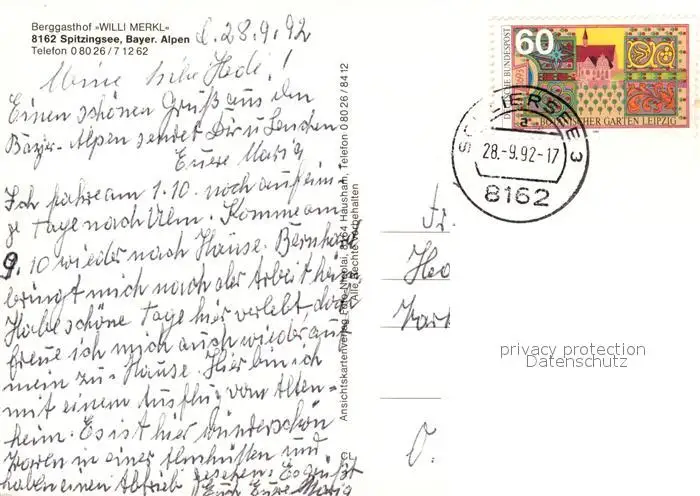 Berggasthof »WILLI MERKL«
8162 Spitzingsee, Bayer. Alpen
Telefon 0 80 26 / 7 12 62
28.9.92
Meine liebe Hedi!
Einen schönen Gruß aus den
Bayr. Alpen sendet Dir u Lenchen
Euere Maria
Ich fahre am 1.10. noch auf eini-
ge Tage nach Ulm. Komme am
9.10 wieder nach Hause. Bernhard
bringt mich nach der Arbeit heim
Habe schöne Tage hier verlebt, doch
freue ich mich auch wieder auf
mein zu-Hause. Hier bin ich
mit einem Ausflug vom Alten-
heim. Es ist hier wunderschön
Waren in einer Almhütten und
haben einen Abtrieb gesehen. Es grüßt
Euch Euere Maria
Ansichtskartenverlag Foto-Nikolai, 8164 Hausham, Telefon 0 80 26 / 84 12
Alle Rechte vorbehalten
60
DEUTSCHE BUNDESPOST
BOTANISCHER GARTEN LEIPZIG
SCHLIERSEE 3
a
28.-9.92-17
8162
Fr.
privacy protection
Datenschutz